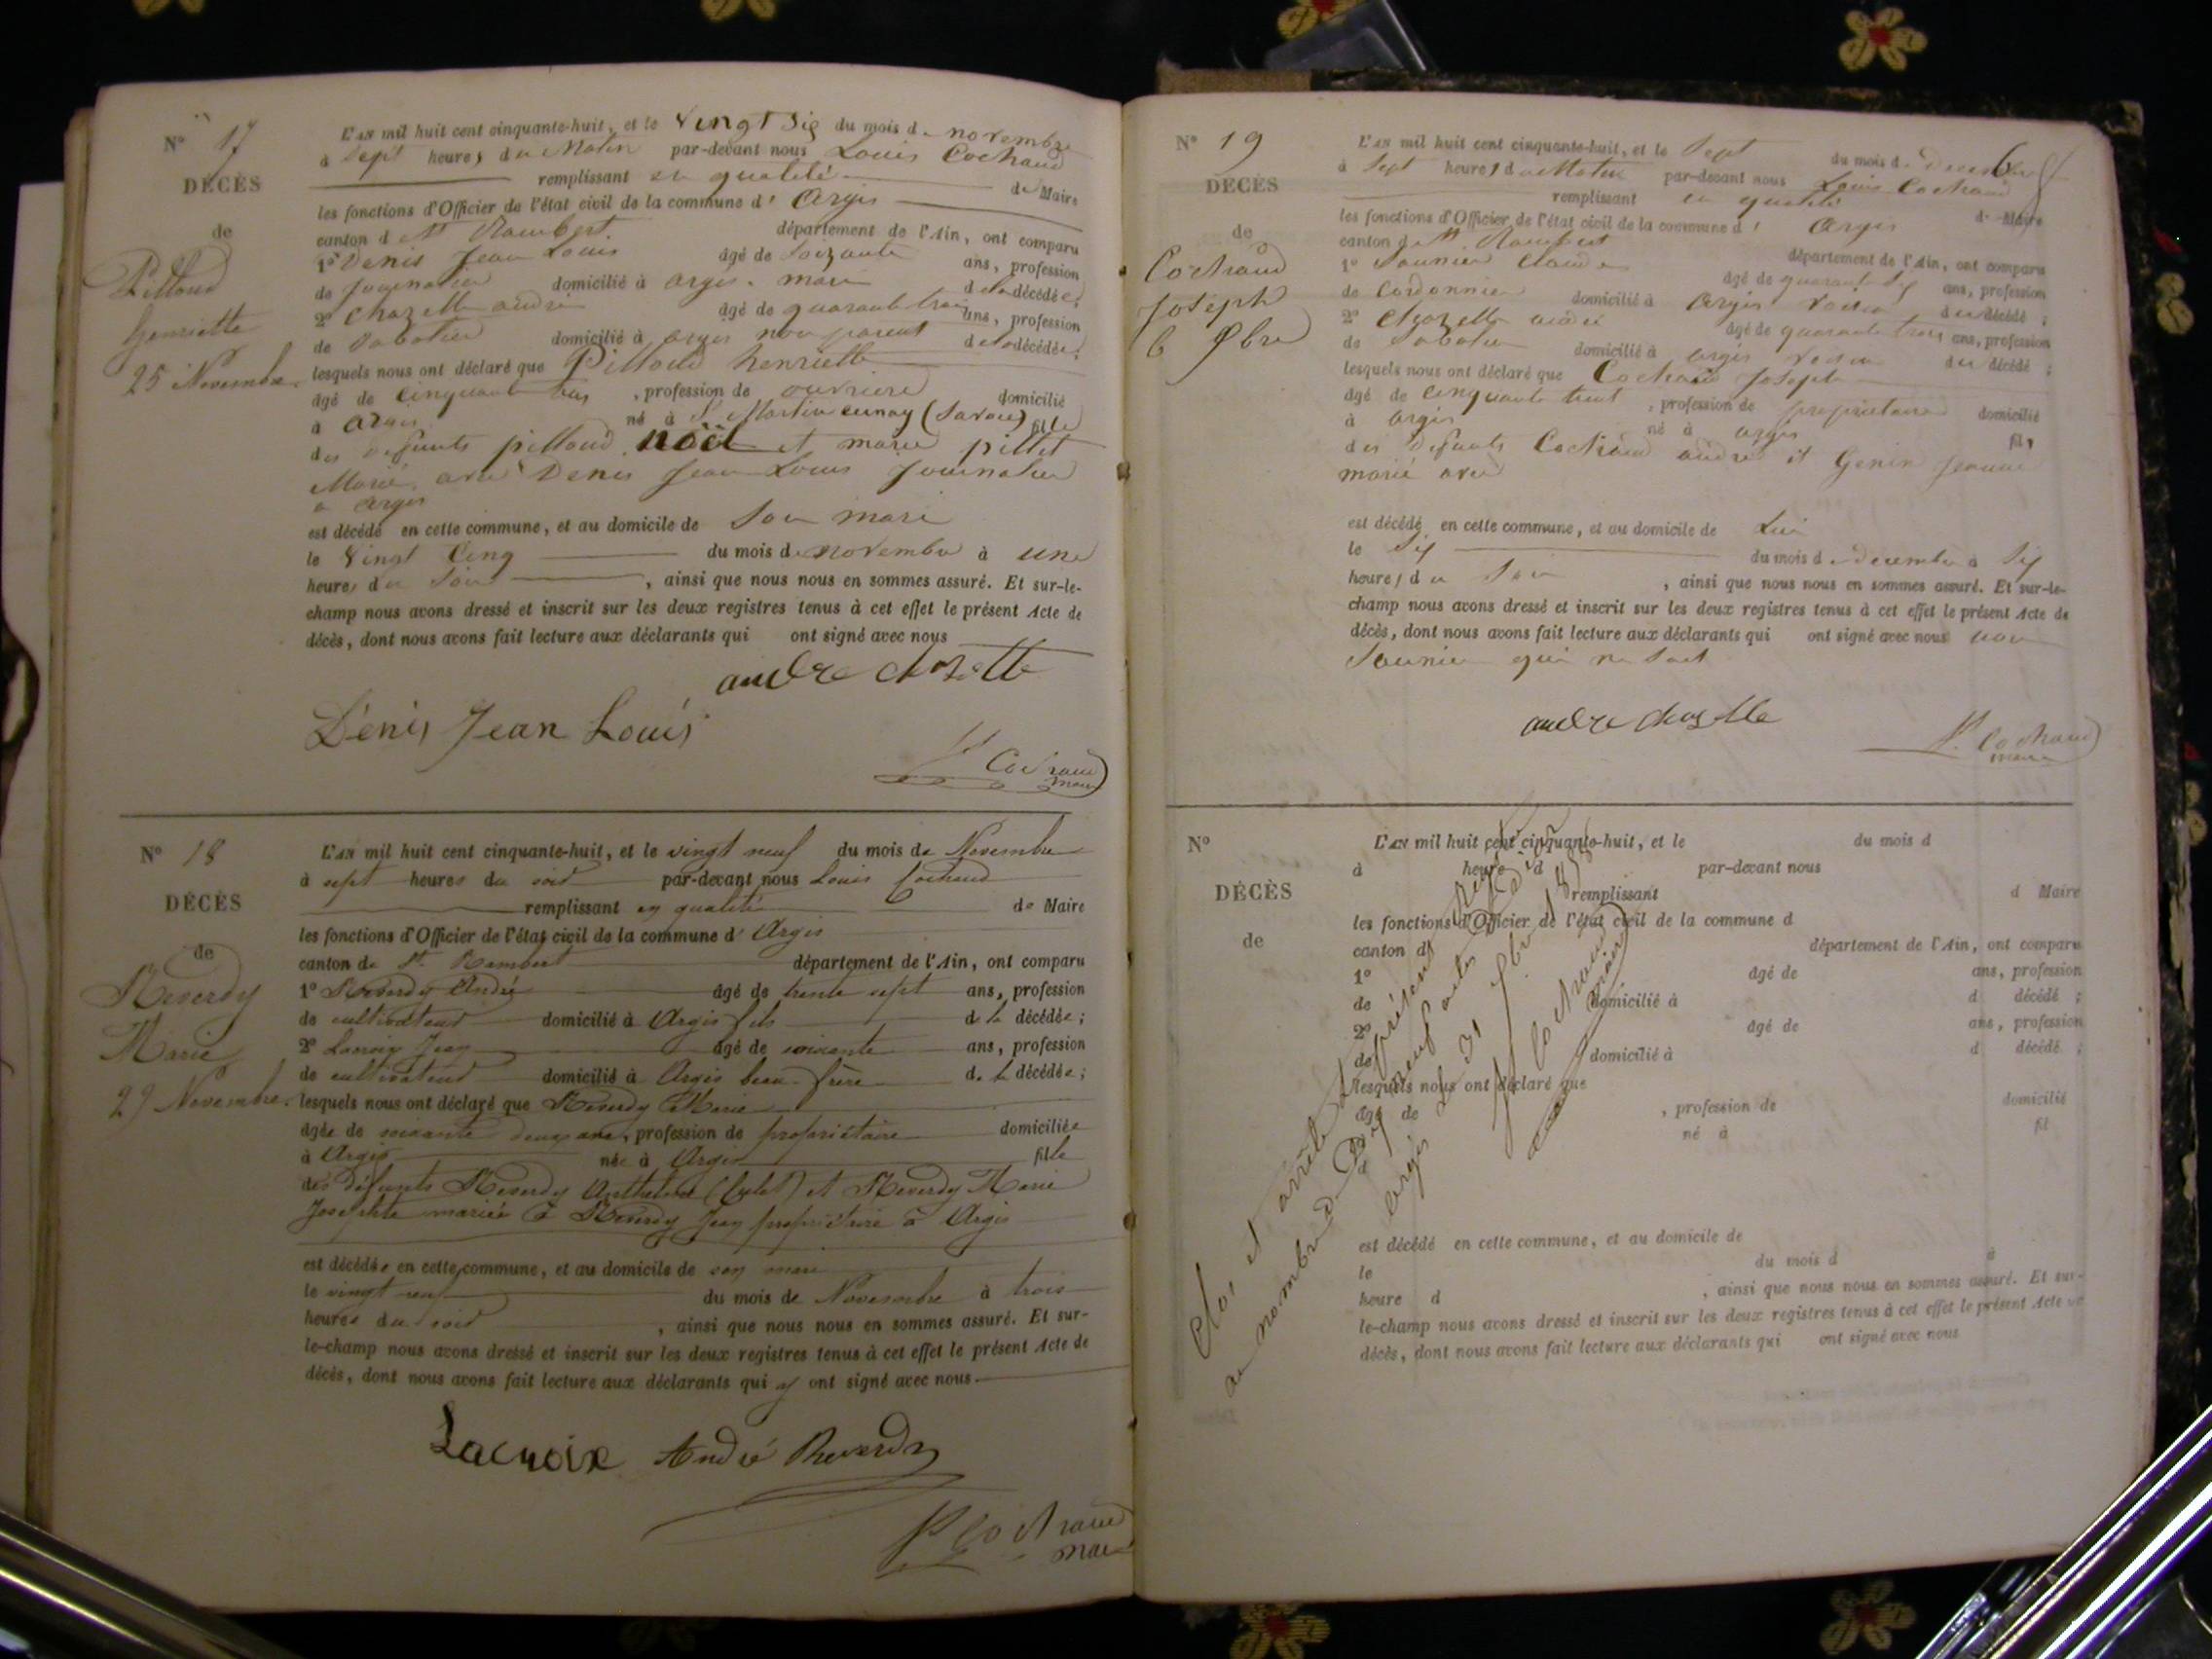 N° 17
DÉCÈS
de
Pilloud
henriette
25 Novembre
L'AN mil huit cent cinquante-huit, et le Vingt Six du mois de novembre
à Sept heures du Matin par-devant nous Louis Cochaud
remplissant en qualité de Maire
les fonctions d'Officier de l'état civil de la commune d' Argis
canton de St Rambert département de l'Ain, ont comparu
1° Denis Jean Louis âgé de Soixante ans, profession
de journalier domicilié à argis. mari de la décédée;
2° Chazette andré âgé de quarante trois ans, profession
de Sabotier domicilié à argis non parent de la décédée;
lesquels nous ont déclaré que Pilloud henriette
âgé de cinquante , profession de ouvriere domicilié
à argis né à St Martin (Savoie) fille
des defunts pilloud noël et marie pillet
Marié avec Denis Jean Louis Journalier
a argis
est décédé en cette commune, et au domicile de Son mari
le Vingt Cinq du mois de novembre à une
heures du Soir , ainsi que nous nous en sommes assuré. Et sur-le-
champ nous avons dressé et inscrit sur les deux registres tenus à cet effet le présent Acte de
décès, dont nous avons fait lecture aux déclarants qui ont signé avec nous
andre chazette
Dénis Jean Louis
L Cochaud
maire
N° 18
DÉCÈS
de
Reverdy
Marie
29 Novembre.
L'AN mil huit cent cinquante-huit, et le vingt neuf du mois de Novembre
à sept heures du soir par-devant nous Louis Cochaud
remplissant en qualité de Maire
les fonctions d'Officier de l'état civil de la commune d' Argis
canton de St. Rambert département de l'Ain, ont comparu
1° Reverdy André âgé de trente sept ans, profession
de cultivateur domicilié à Argis fils de la décédée;
2° Lacroix Jean âgé de soixante ans, profession
de cultivateur domicilié à Argis beau-frère de la décédée;
lesquels nous ont déclaré que Reverdy Marie
âgée de soixante deux ans, profession de propriétaire domiciliée
à Argis née à Argis fille
des défunts Reverdy Anthelme et Reverdy Marie
Josephte mariée à Reverdy Jean propriétaire à Argis
est décédée en cette commune, et au domicile de son mari
le vingt neuf du mois de Novembre à trois
heures du soir , ainsi que nous nous en sommes assuré. Et sur-
le-champ nous avons dressé et inscrit sur les deux registres tenus à cet effet le présent Acte de
décès, dont nous avons fait lecture aux déclarants qui ont signé avec nous
Lacroix André Reverdy
L Cochaud
maire
N° 19
DÉCÈS
de
Cochaud
Joseph
6 Xbre
L'AN mil huit cent cinquante-huit, et le Sept du mois de Decembre
à Sept heures du Matin par-devant nous Louis Cochaud
remplissant en qualité de Maire
les fonctions d'Officier de l'état civil de la commune d' Argis
canton de St. Rambert département de l'Ain, ont comparu
1° Saunier Claude âgé de quarante Six ans, profession
de Cordonnier domicilié à argis Voisin du décédé;
2° Chazette andré âgé de quarante trois ans, profession
de Sabotier domicilié à argis Voisin du décédé;
lesquels nous ont déclaré que Cochaud Joseph
âgé de cinquante huit , profession de propriétaire domicilié
à argis né à argis fils
des défunts Cochaud andré et Genin jeanne
marié avec
est décédé en cette commune, et au domicile de Lui
le Six du mois de decembre à Six
heures du Soir , ainsi que nous nous en sommes assuré. Et sur-le-
champ nous avons dressé et inscrit sur les deux registres tenus à cet effet le présent Acte de
décès, dont nous avons fait lecture aux déclarants qui ont signé avec nous non
Saunier qui ne Sait
andre chazette
L. Cochaud
maire
N°
DÉCÈS
de
L'AN mil huit cent cinquante-huit, et le du mois d
à heure d par-devant nous
remplissant d Maire
les fonctions d'Officier de l'état civil de la commune d
canton d département de l'Ain, ont comparu
1° âgé de ans, profession
de domicilié à d décédé ;
2° âgé de ans, profession
de domicilié à d décédé ;
lesquels nous ont déclaré que
âgé de , profession de domicilié
né à fil
d
est décédé en cette commune, et au domicile de
le du mois d à
heure d , ainsi que nous nous en sommes assuré. Et sur-
le-champ nous avons dressé et inscrit sur les deux registres tenus à cet effet le présent Acte de
décès, dont nous avons fait lecture aux déclarants qui ont signé avec nous
Clos et arrêté le présent
au nombre de Dix neuf actes
argis Le 31 Xbre 1858
L Cochaud
maire